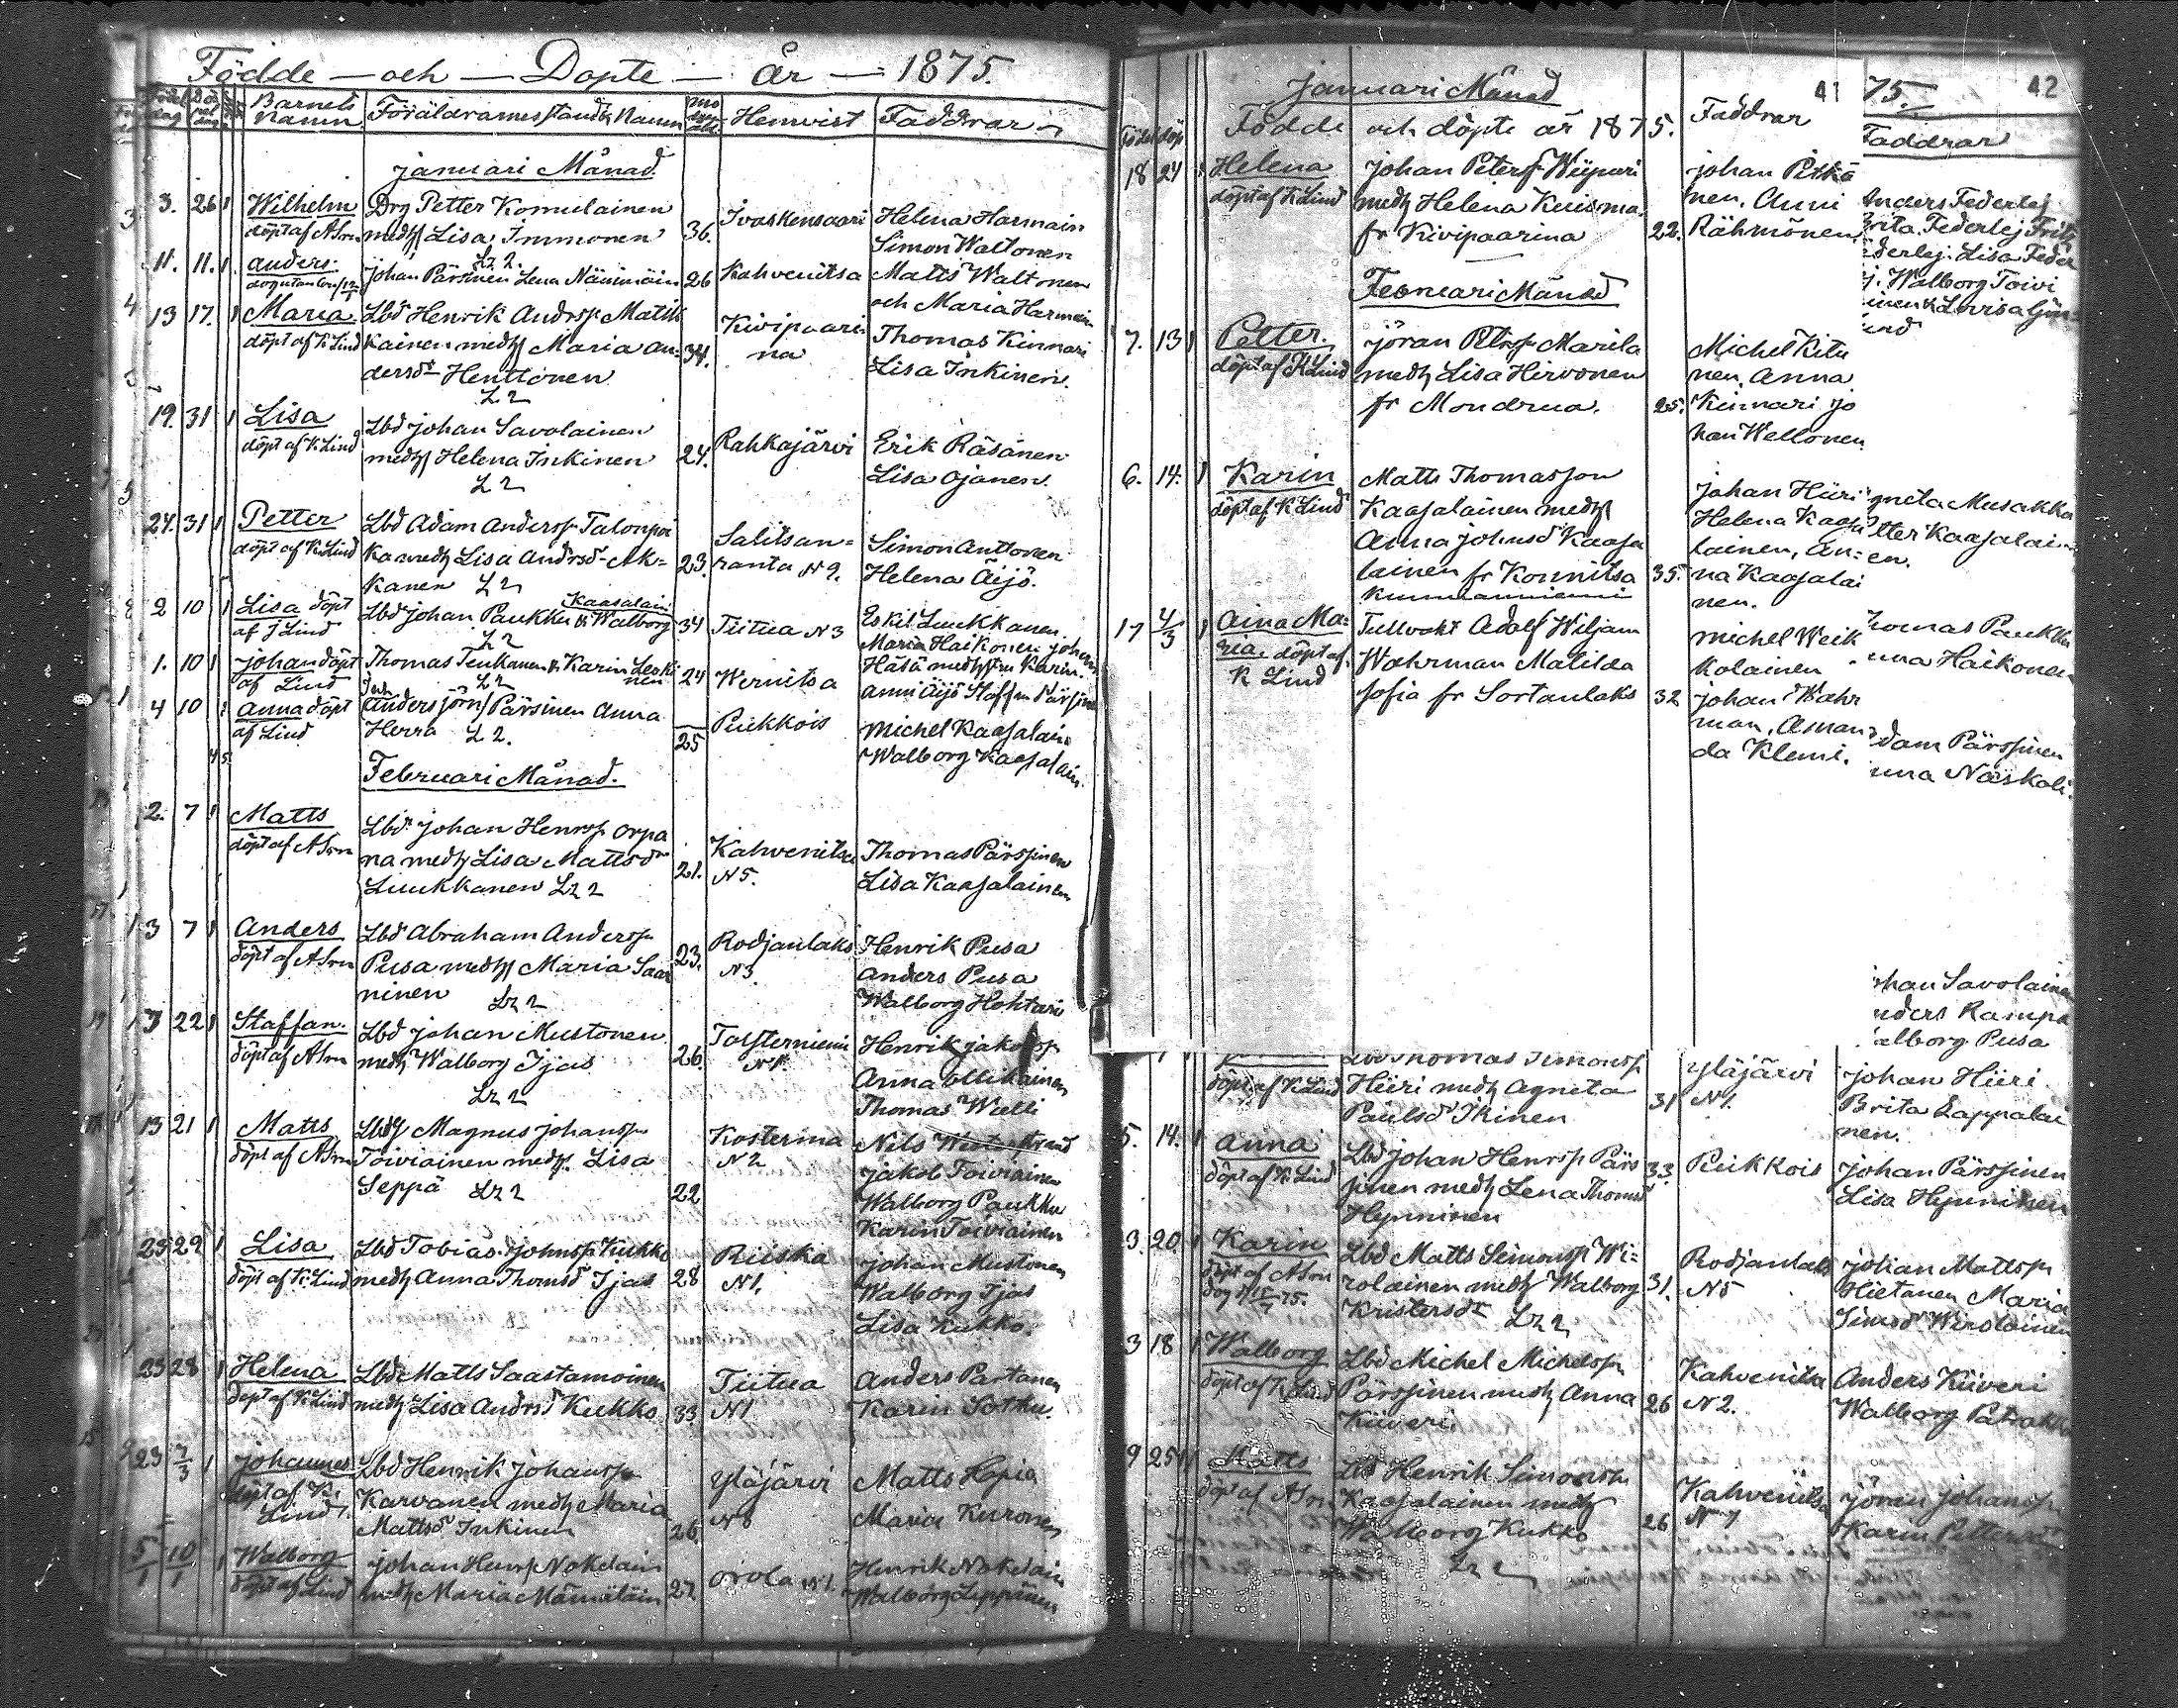 Födde — och — Döpte — År — 1875.
Barnets namn Föräldrarnes stånd & Namn Hemvist Faddrar
Januari Månad
3. 26 1 Wilhelm Drg Petter Komulainen Ivaskensaari Helena Harmain
döpt af A Srn medh Lisa Immonen 36. Simon Waltonen
Lz 2.
11. 11. 1. Anders Johan Pärsinen Lena 26 Kahvenitsa Matts Waltonen
och Maria Harmain
13 17. 1 Maria Lbd Henrik Andrsp Matik Kivipaari-
döpt af K Lind kainen medh Maria An- 34. na Thomas Kinnari
dersdr Henttonen Lisa Inkinen.
L 2
19. 31 1 Lisa Lbd Johan Savolainen
döpt af K Lind medh Helena Inkinen 24. Rahkajärvi Erik Räsänen
L 2 Lisa Ojanen.
24. 31 1 Petter Lbd Adam Andersp Talonpoi Salitsan=
döpt af K Lind ka medh Lisa Andrsd Ak= 23. ranta N 9. Simon Anttonen
kanen L 2 Helena Äijö.
Kaasalain
2 10 1 Lisa döpt Lbd Johan Paukku & Walborg 34 Tiitua N 3 Eskil Luukkanen
af J Lind L 2 Maria Haikonen
1. 10 1 Johan döpt Thomas Tenkanen & Karin Leski 24 Wernitsa
af Lind L 2 nen Anni Äijö Staffan Pärsinen
4 10 1 Anna döpt Anders Jörn Pärsinen Anna Pukkois
af Lind Herra L 2. 25 Michel Kaasalain
Walborg Kaasalain.
Februari Månad.
2. 7 1 Matts Lbd Johan Henrsp Orpa
döpt af A Srn na medh Lisa Mattsdr 21. Kahvenitsa Thomas Pärssinen
Luukkanen Lz 2 N 5. Lisa Kaasalainen
3 7 1 Anders Lbd Abraham Andersp Rodjanlaks Henrik Pusa
döpt af A Srn Pusa medh Maria Saar 23. N 3 Anders Pusa
ninen Lz 2 Walborg Hohtari
3 22 1 Staffan Lbd Johan Mustonen Torsterniemi Henrik Jakobsp
döpt af A Srn medh Walborg Ijas 26. N 1. Anna Ollikainen
Lz 2 Thomas Walli
13 21 1 Matts Lbd Magnus Johansp Kosterina Nils Westerstrand
döpt af A Srn Toiviainen medh Lisa N 2 Jakob Toiviainen
Seppä Lz 2 22 Walborg Paukku
Karin Toiviainen
25 29 1 Lisa Lbd Tobias Johnsp Kukko Riiska Johan Mustonen
döpt af K Lind medh Anna Thomsd Ijas 28 N 1. Walborg Ijas
Lisa Kukko.
23 28 1 Helena Lbd Matts Saastamoinen Tiitua Anders Partanen
döpt af K Lind medh Lisa Andrsd Kukko 33 N 1 Karin Sothu.
23 7/3 1 Johannes Lbd Henrik Johansp Yläjärvi Matts Hopia
döpt af K. Karvanen medh Maria N 8 Maria Kuronen
Lind Mattsd Inkinen 26
5/1 10/1 1 Walborg Johan Henrsp Nokelain Orola N 1. Henrik Nokelain
döpt af Lind medh Maria Mämäläin 27 Walborg Leppänen
41 75. 42
Januari Månad
Födde och döpte år 1875. Faddrar
Faddrar
18 24 1 Helena Johan Petersp Wiipuri Johan Pitkä
döpt af K Lind medh Helena Kuisma nen, Anni
fr Kivipaarina 22. Rähmönen.
Anders Federlej
Brita Federlej Frits
ederlej. Lisa Feder
j. Walborg Toivi
inen & Lovisa Gjön-
und
Februari Månad
7. 13 1 Petter. Jöran Petersp Marila Michel Kitu
döpt af K Lind medh Lisa Hirvonen nen, Anna
fr Mondrua. 25. Kinnari Jo
han Wellonen
6. 14. 1 Karin Matts Thomasson Johan Hiiri
döpt af K Lind Kaasalainen medh Helena Kaasa
Anna Johnsd Kaasa lainen, An=
lainen fr Konnitsa 35. na Kaasalai
nen.
gneta Musakka
tter Kaasalain
en.
17 4/3 1 Aina Ma= Tullvakt Adolf Wiljam Michel Weik
ria. döpt af Wahrman Matilda kolainen
K Lind Sofia fr Sortanlaks 32 Johan Wahr
man, Aman
da Klemi.
homas Paukku
nna Haikonen
dam Pärssinen
nna Näskali.
ohan Savolainen
nders Rampa
alborg Pusa
Thomas Simonsp Yläjärvi Johan Hiiri
döpt af K Lind Hiiri medh Agneta 31 N 4. Brita Lappalai
Paulsd Ikinen nen.
5. 14. 1 Anna Lbd Johan Henrsp Pärs 33. Pukkois Johan Pärssinen
döpt af K Lind sinen medh Lena Thomsd Lisa Hynninen
Hynninen
3. 20. 1 Karin Lbd Matts Simonsp Wi= Rodjanlaks Johan Mattsp
döpt af A Srn rolainen medh Walborg 31. N 5 Hietanen Maria
Kristersdr Lz 2 Simsd Wirolainen
3 18 1 Walborg Lbd Michel Michelsp Kahvenitsa Anders Kiiveri
döpt af K Lind Pärssinen medh Anna 26 N 2. Walborg
Kiiveri
9 25 1 Matts Lbd Henrik Simonsp Kahvenitsa Jöran Johansp
döpt af A Srn Kaasalainen medh N 7 Karin
Walborg Kukko 26
Lz 2